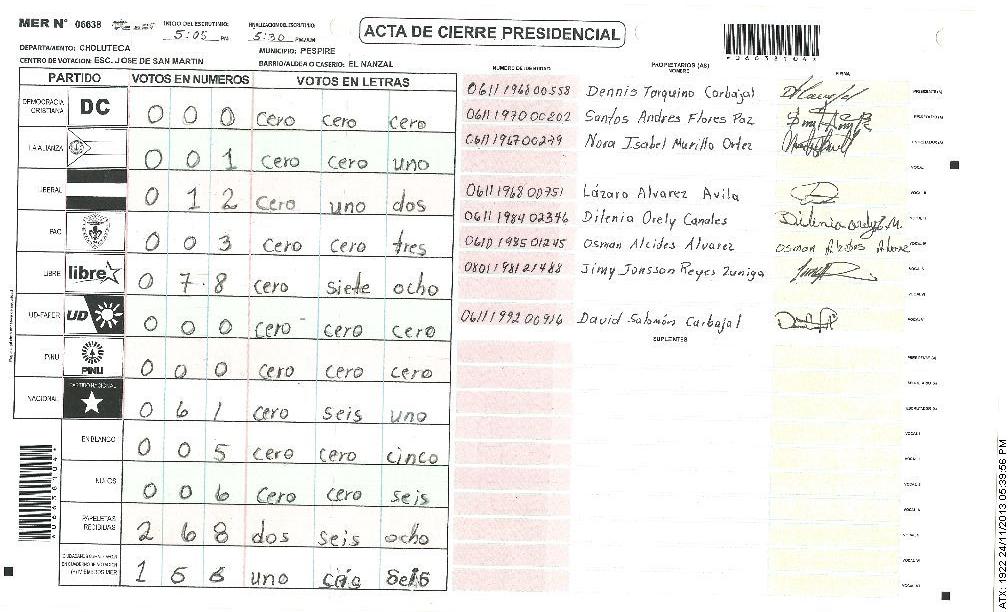 MER N° 06638 INICIO DEL ESCRUTINIO: 5:05 PM FINALIZACION DEL ESCRUTINIO: 5:30 PM/AM
ACTA DE CIERRE PRESIDENCIAL
DEPARTAMENTO: CHOLUTECA MUNICIPIO: PESPIRE
CENTRO DE VOTACION: ESC. JOSE DE SAN MARTIN BARRIO/ALDEA O CASERIO: EL NANZAL
PARTIDO VOTOS EN NUMEROS VOTOS EN LETRAS
DEMOCRACIA CRISTIANA DC 0 0 0 cero cero cero
LA ALIANZA 0 0 1 cero cero uno
LIBERAL 0 1 2 cero uno dos
PAC 0 0 3 cero cero tres
LIBRE libre 0 7 8 cero siete ocho
UD-FAPER UD 0 0 0 cero cero cero
PINU PINU 0 0 0 cero cero cero
NACIONAL PARTIDO NACIONAL 0 6 1 cero seis uno
EN BLANCO 0 0 5 cero cero cinco
NULOS 0 0 6 cero cero seis
PAPELETAS RECIBIDAS 2 6 8 dos seis ocho
1 6 6 uno seis
NUMERO DE IDENTIDAD PROPIETARIOS (AS) NOMBRE FIRMA
0611 1968 00558 Dennis Torquino Carbajal PRESIDENTE(A)
0611 1970 00202 Santos Andres Flores Paz
0611 1967 00279 Nora Isabel Murillo Ortez
VOCAL I
0611 1968 00751 Lázaro Alvarez Avila VOCAL II
0611 1984 02346 Dilenia Orely Canales Dilenia orely M.
0610 1985 01245 Osman Alcides Alvarez
0801 1981 21488 Jimy Jonsson Reyes Zuniga VOCAL V
VOCAL VI
0611 1992 00916 David Salomón Carbajal
SUPLENTES
PRESIDENTE (A)
SECRETARIO (A)
ESCRUTADOR (A)
VOCAL I
VOCAL II
VOCAL V
VOCAL VI
ATX: 1922 24/11/2013 05:39:56 PM